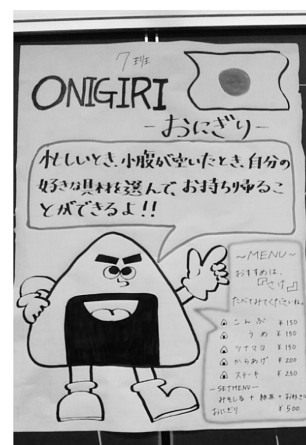 7班
ONIGIRI
-おにぎり-
忙しいとき、小腹が空いたとき、自分の
好きな具材を選んで、お持ち帰るこ
とができるよ!!
~MENU~
おすすめは、
『さけ』
たべてみてくださいね。
こんぶ ¥150
うめ ¥150
ツナマヨ ¥150
からあげ ¥200
ステーキ ¥250
-SETMENU-
みそしる + 緑茶 +
おにぎり ¥500